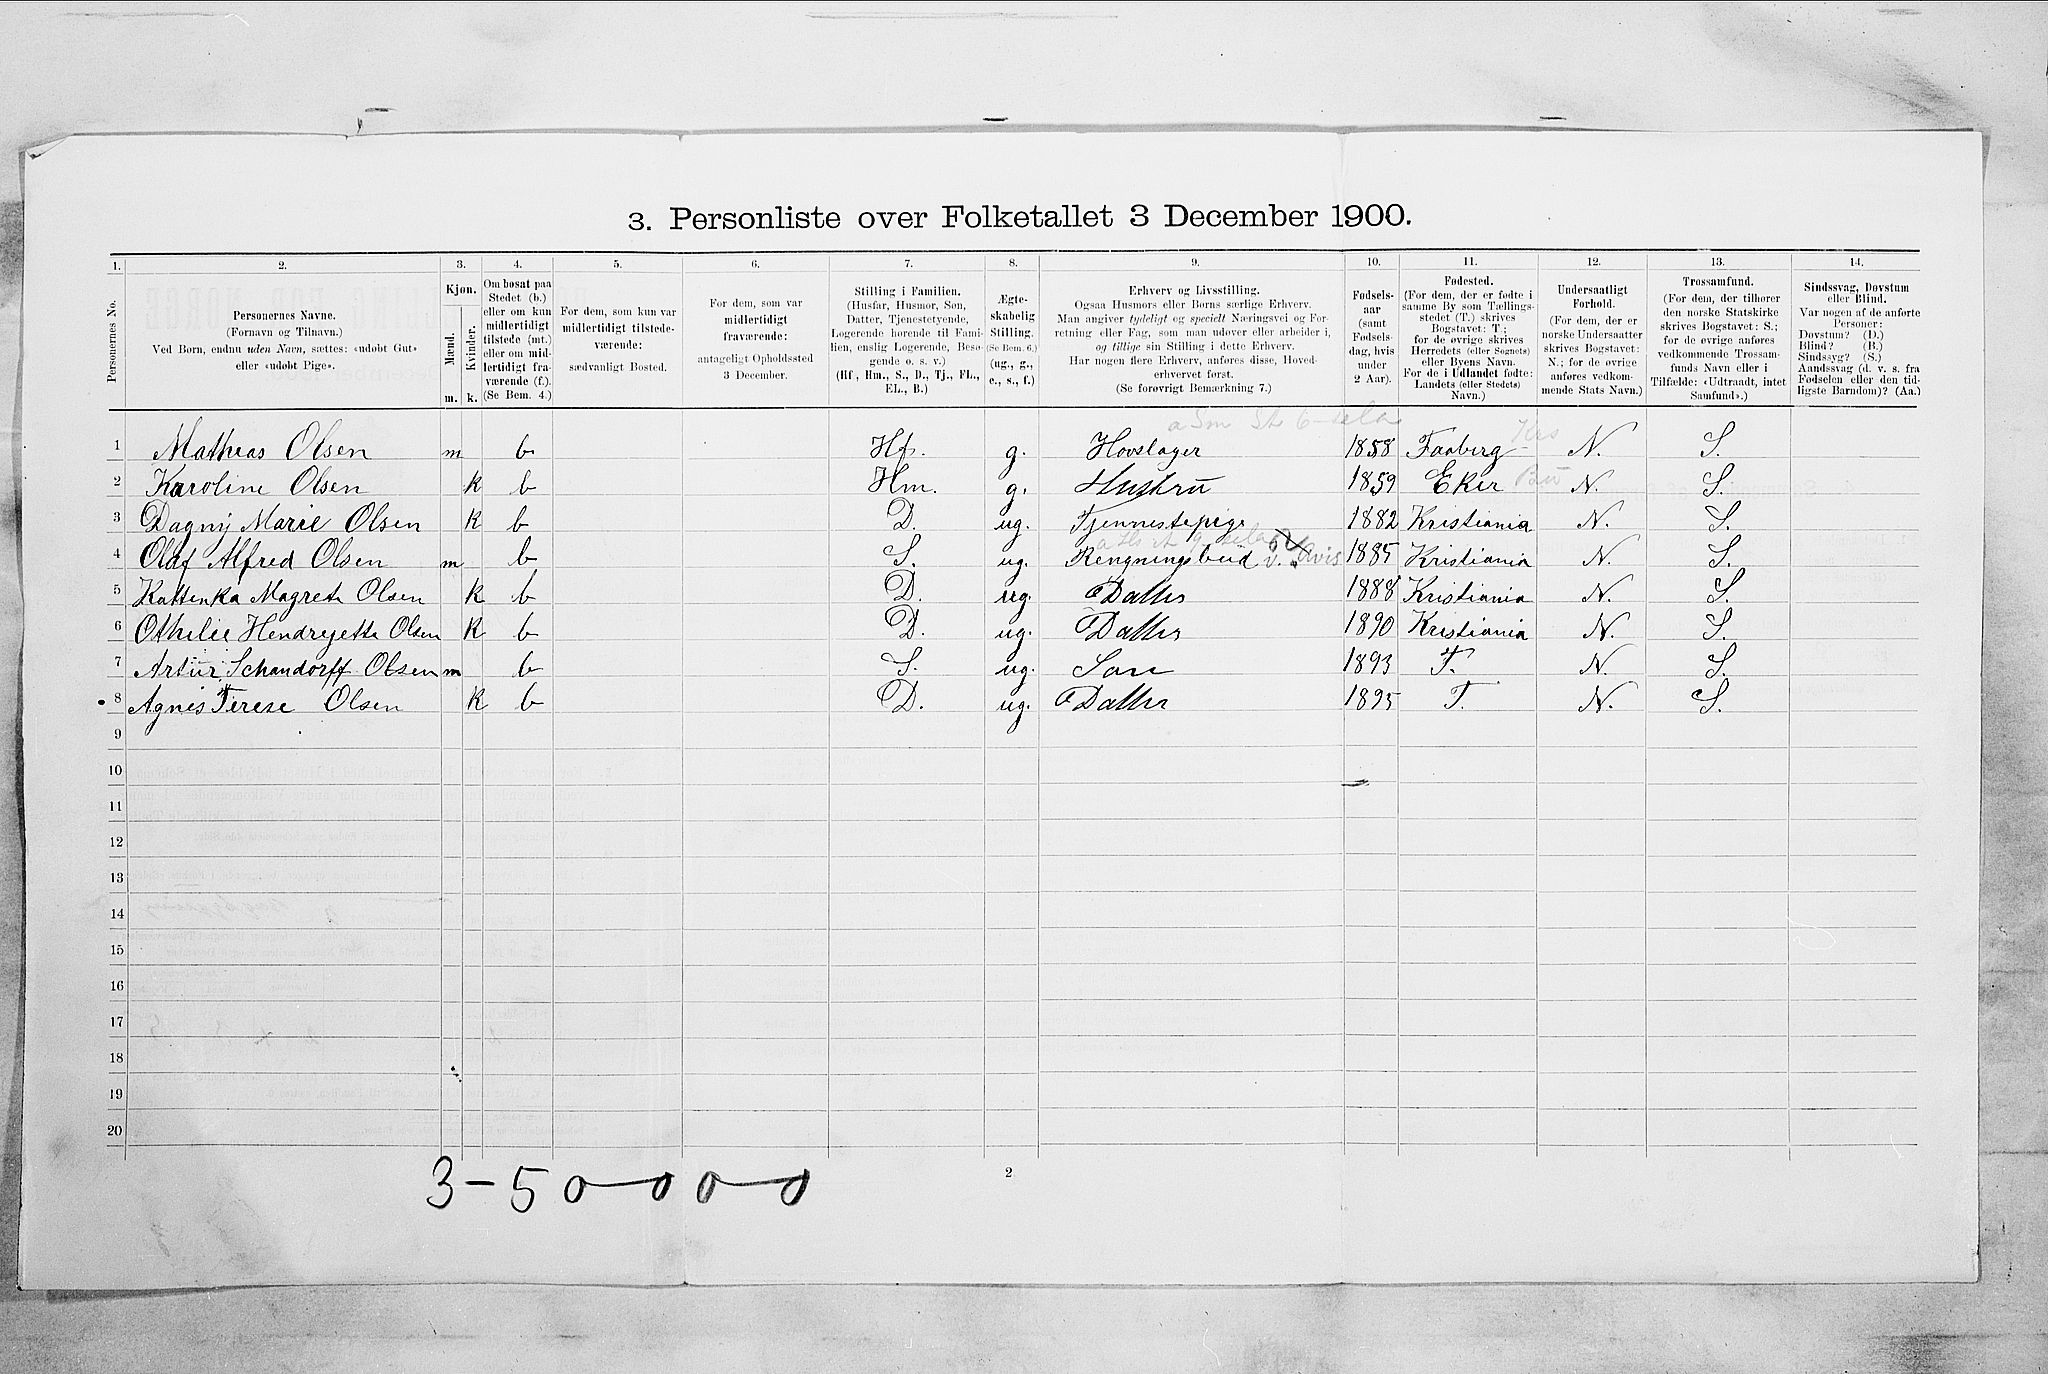 3. Personliste over Folketallet 3 December 1900.
1. 2. 3. 4. 5. 6. 7. 8. 9. 10. 11. 12. 13. 14.
Personernes No.
Personernes Navne.
(Fornavn og Tilnavn.)
Ved Børn, endnu uden Navn, sættes: «udøbt Gut»
eller «udøbt Pige».
Kjøn.
Mænd.
Kvinder.
m. k.
Om bosat paa
Stedet (b.)
eller om kun
midlertidigt
tilstede (mt.)
eller om mid-
lertidigt fra-
værende (f.).
(Se Bem. 4.)
For dem, som kun var
midlertidigt tilstede-
værende:
sædvanligt Bosted.
For dem, som var
midlertidigt
fraværende:
antageligt Opholdssted
3 December.
Stilling i Familien.
(Husfar, Husmor, Søn,
Datter, Tjenestetyende,
Logerende hørende til Fami-
lien, enslig Logerende, Besø-
gende o. s. v.)
(Hf., Hm., S., D., Tj., FL.,
EL., B.)
Ægte-
skabelig
Stilling.
(Se Bem. 6.)
(ug., g.,
e., s., f.)
Erhverv og Livsstilling.
Ogsaa Husmors eller Børns særlige Erhverv.
Man angiver tydeligt og specielt Næringsvei og For-
retning eller Fag, som man udøver eller arbeider i,
og tillige sin Stilling i dette Erhverv.
Har nogen flere Erhverv, anføres disse, Hoved-
erhvervet først.
(Se forøvrigt Bemærkning 7.)
Fødsels-
aar
(samt
Fødsels-
dag, hvis
under
2 Aar).
Fødested.
(For dem, der er fødte i
samme By som Tællings-
stedet (T.) skrives
Bogstavet: T.;
for de øvrige skrives
Herredets (eller Sognets)
eller Byens Navn.
For de i Udlandet fødte:
Landets (eller Stedets)
Navn.)
Undersaatligt
Forhold.
(For dem, der er
norske Undersaatter
skrives Bogstavet:
N.; for de øvrige
anføres vedkom-
mende Stats Navn.)
Trossamfund.
(For dem, der tilhører
den norske Statskirke
skrives Bogstavet: S.;
for de øvrige anføres
vedkommende Trossam-
funds Navn eller i
Tilfælde: «Udtraadt, intet
Samfund».)
Sindssvag, Døvstum
eller Blind.
Var nogen af de anførte
Personer:
Døvstum? (D.)
Blind? (B.)
Sindssyg? (S.)
Aandssvag (d. v. s. fra
Fødselen eller den tid-
ligste Barndom)? (Aa.)
1 Mathias Olsen m b Hf. g. Hovslager 1858 Faaberg N. S.
2 Karoline Olsen k b Hm. g. Hustru 1859 Eker N. S.
3 Dagny Marie Olsen k b D. ug. Tjennestepige 1882 Kristiania N. S.
4 Olaf Alfred Olsen m b S. ug. Rengningsbud v. Avis 1885 Kristiania N. S.
5 Kattenka Magrete Olsen k b D. ug. Datter 1888 Kristiania N. S.
6 Othilie Hendryette Olsen k b D. ug. Datter 1890 Kristiania N. S.
7 Artur Schandorff Olsen m b S. ug. Søn 1893 T. N. S.
8 Agnes Terese Olsen k b D. ug. Datter 1895 T. N. S.
9
10
11
12
13
14
15
16
17
18
19
20
3-50000
2